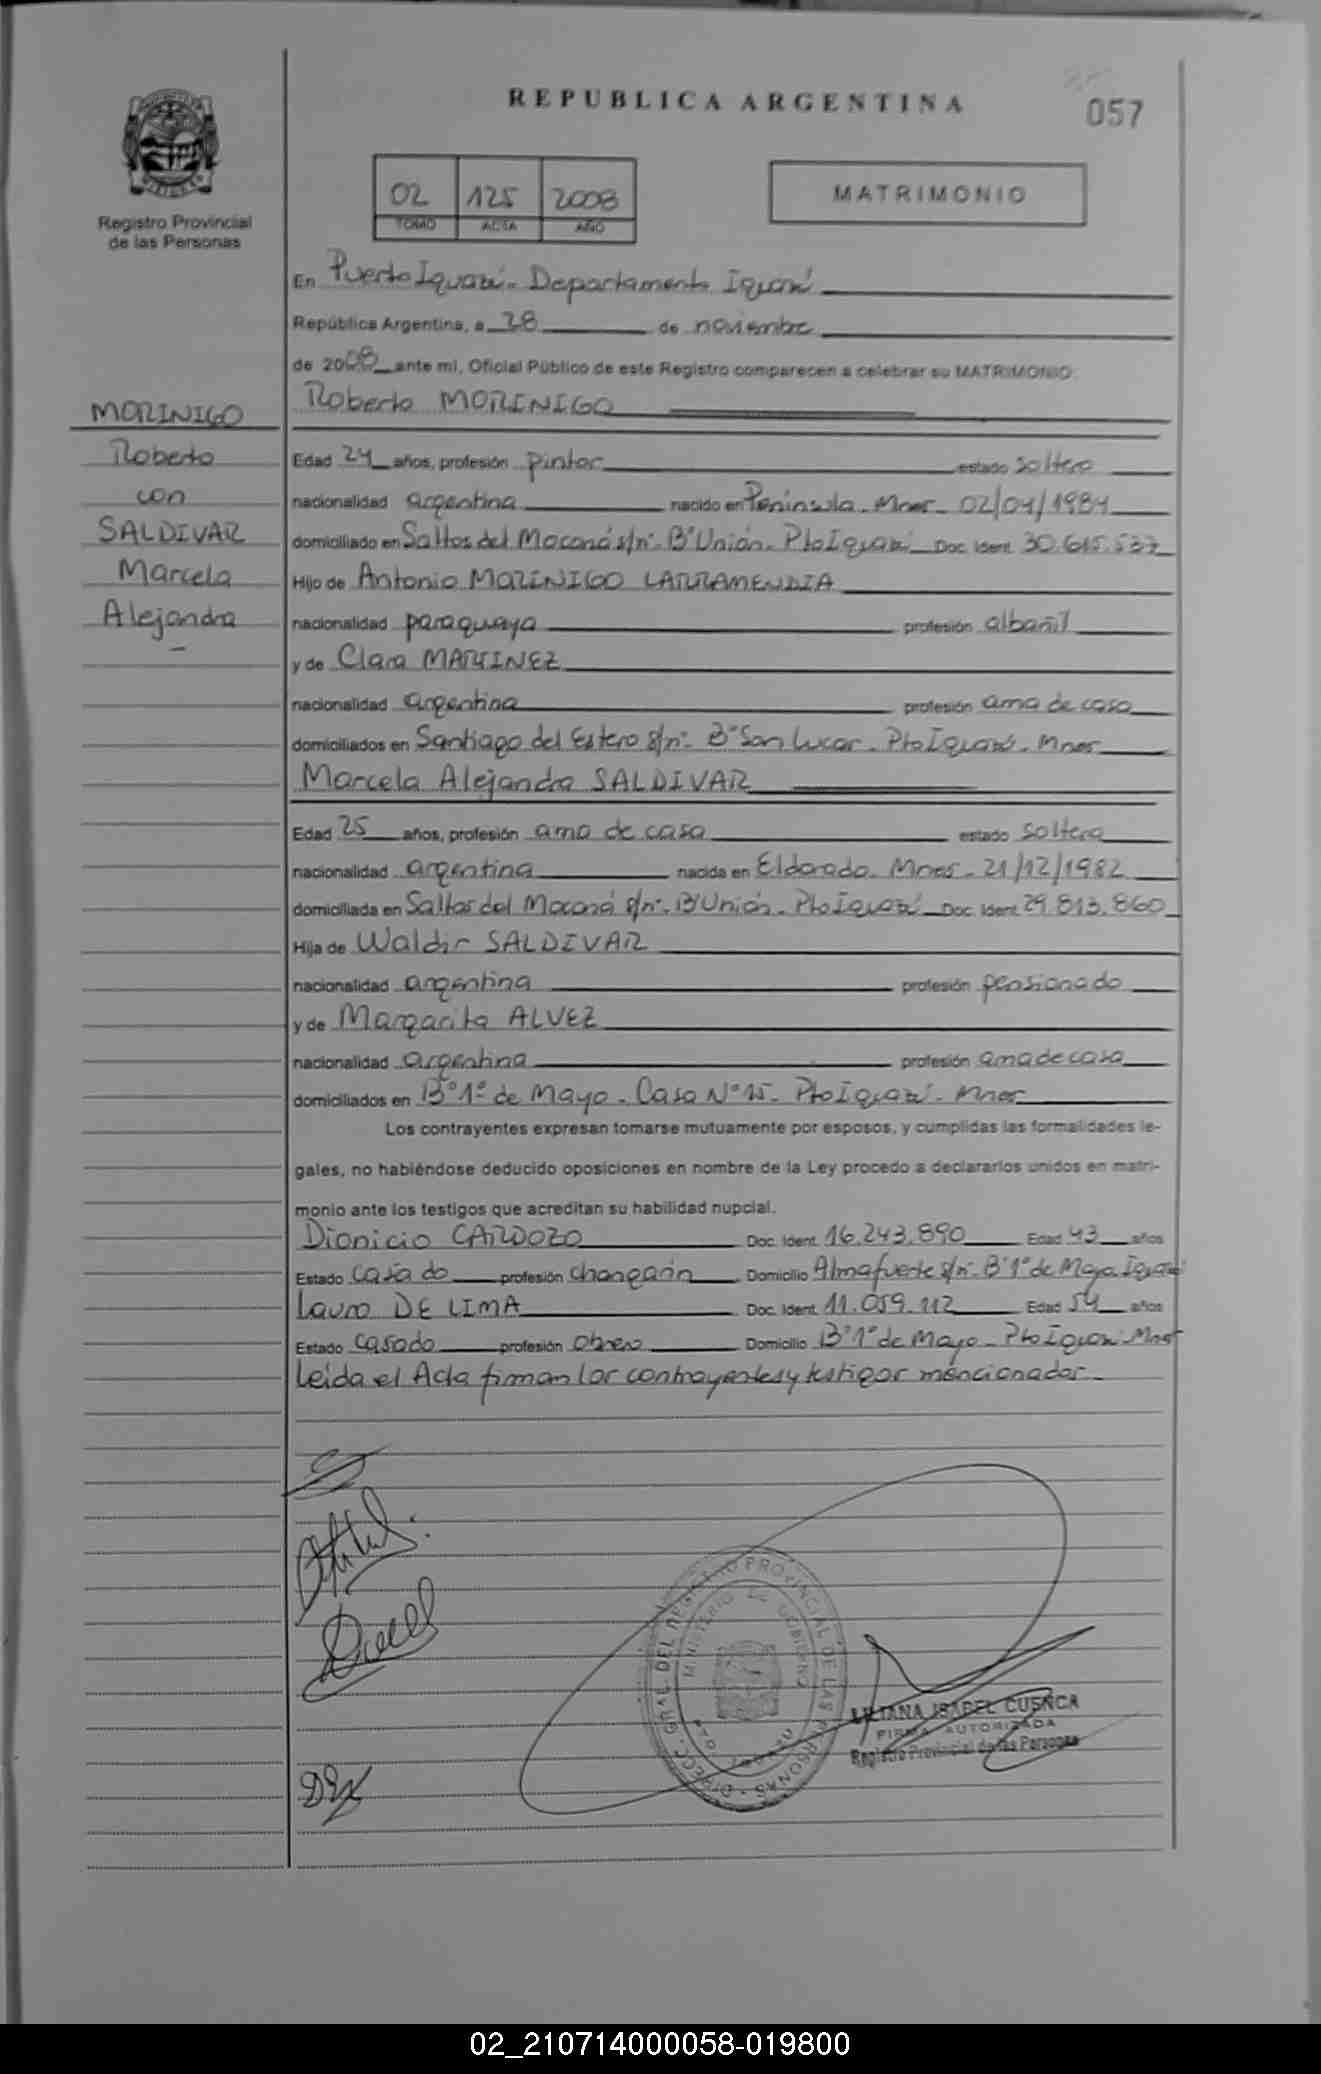 REPUBLICA ARGENTINA
057
02 125 2008
TOMO ACTA AÑO
MATRIMONIO
Registro Provincial
de las Personas
En Puerto Iguazú - Departamento Iguazú
República Argentina, a 28 de noviembre
de 2008 ante mi, Oficial Público de este Registro comparecen a celebrar su MATRIMONIO:
Roberto MORINIGO
MORINIGO
Roberto
con
SALDIVAR
Marcela
Alejandra
Edad 24 años, profesión pintor estado soltero
nacionalidad argentina nacido en Península - Mnes - 02/04/1984
domiciliado en Saltos del Moconá s/nº - Bº Unión - Pto Iguazú Doc. Ident. 30.615.537
Hijo de Antonio MORINIGO LARRAMENDIA
nacionalidad paraguaya profesión albañil
y de Clara MARTINEZ
nacionalidad argentina profesión ama de casa
domiciliados en Santiago del Estero s/nº - Bº San Lucar - Pto Iguazú - Mnes
Marcela Alejandra SALDIVAR
Edad 25 años, profesión ama de casa estado soltera
nacionalidad argentina nacida en Eldorado - Mnes - 21/12/1982
domiciliada en Saltos del Moconá s/nº - Bº Unión - Pto Iguazú Doc. Ident. 29.813.860
Hija de Waldir SALDIVAR
nacionalidad argentina profesión pensionado
y de Margarita ALVEZ
nacionalidad argentina profesión ama de casa
domiciliados en Bº 1º de Mayo - Casa Nº 15 - Pto Iguazú - Mnes
Los contrayentes expresan tomarse mutuamente por esposos, y cumplidas las formalidades le-
gales, no habiéndose deducido oposiciones en nombre de la Ley procedo a declararlos unidos en matri-
monio ante los testigos que acreditan su habilidad nupcial.
Dionicio CARDOZO Doc. Ident. 16.243.890 Edad 43 años
Estado casado profesión changarin Domicilio Almafuerte s/nº - Bº 1º de Mayo Iguazú
Lauro DE LIMA Doc. Ident. 11.059.112 Edad 54 años
Estado casado profesión obrero Domicilio Bº 1º de Mayo - Pto Iguazú Mnes
Leída el Acta firman los contrayentes y testigos mencionados
DIRECC. GRAL. DEL REGISTRO PROVINCIAL DE LAS PERSONAS
MINISTERIO DE GOBIERNO
LILIANA ISABEL CUENCA
FIRMA AUTORIZADA
Registro Provincial de las Personas
02_210714000058-019800